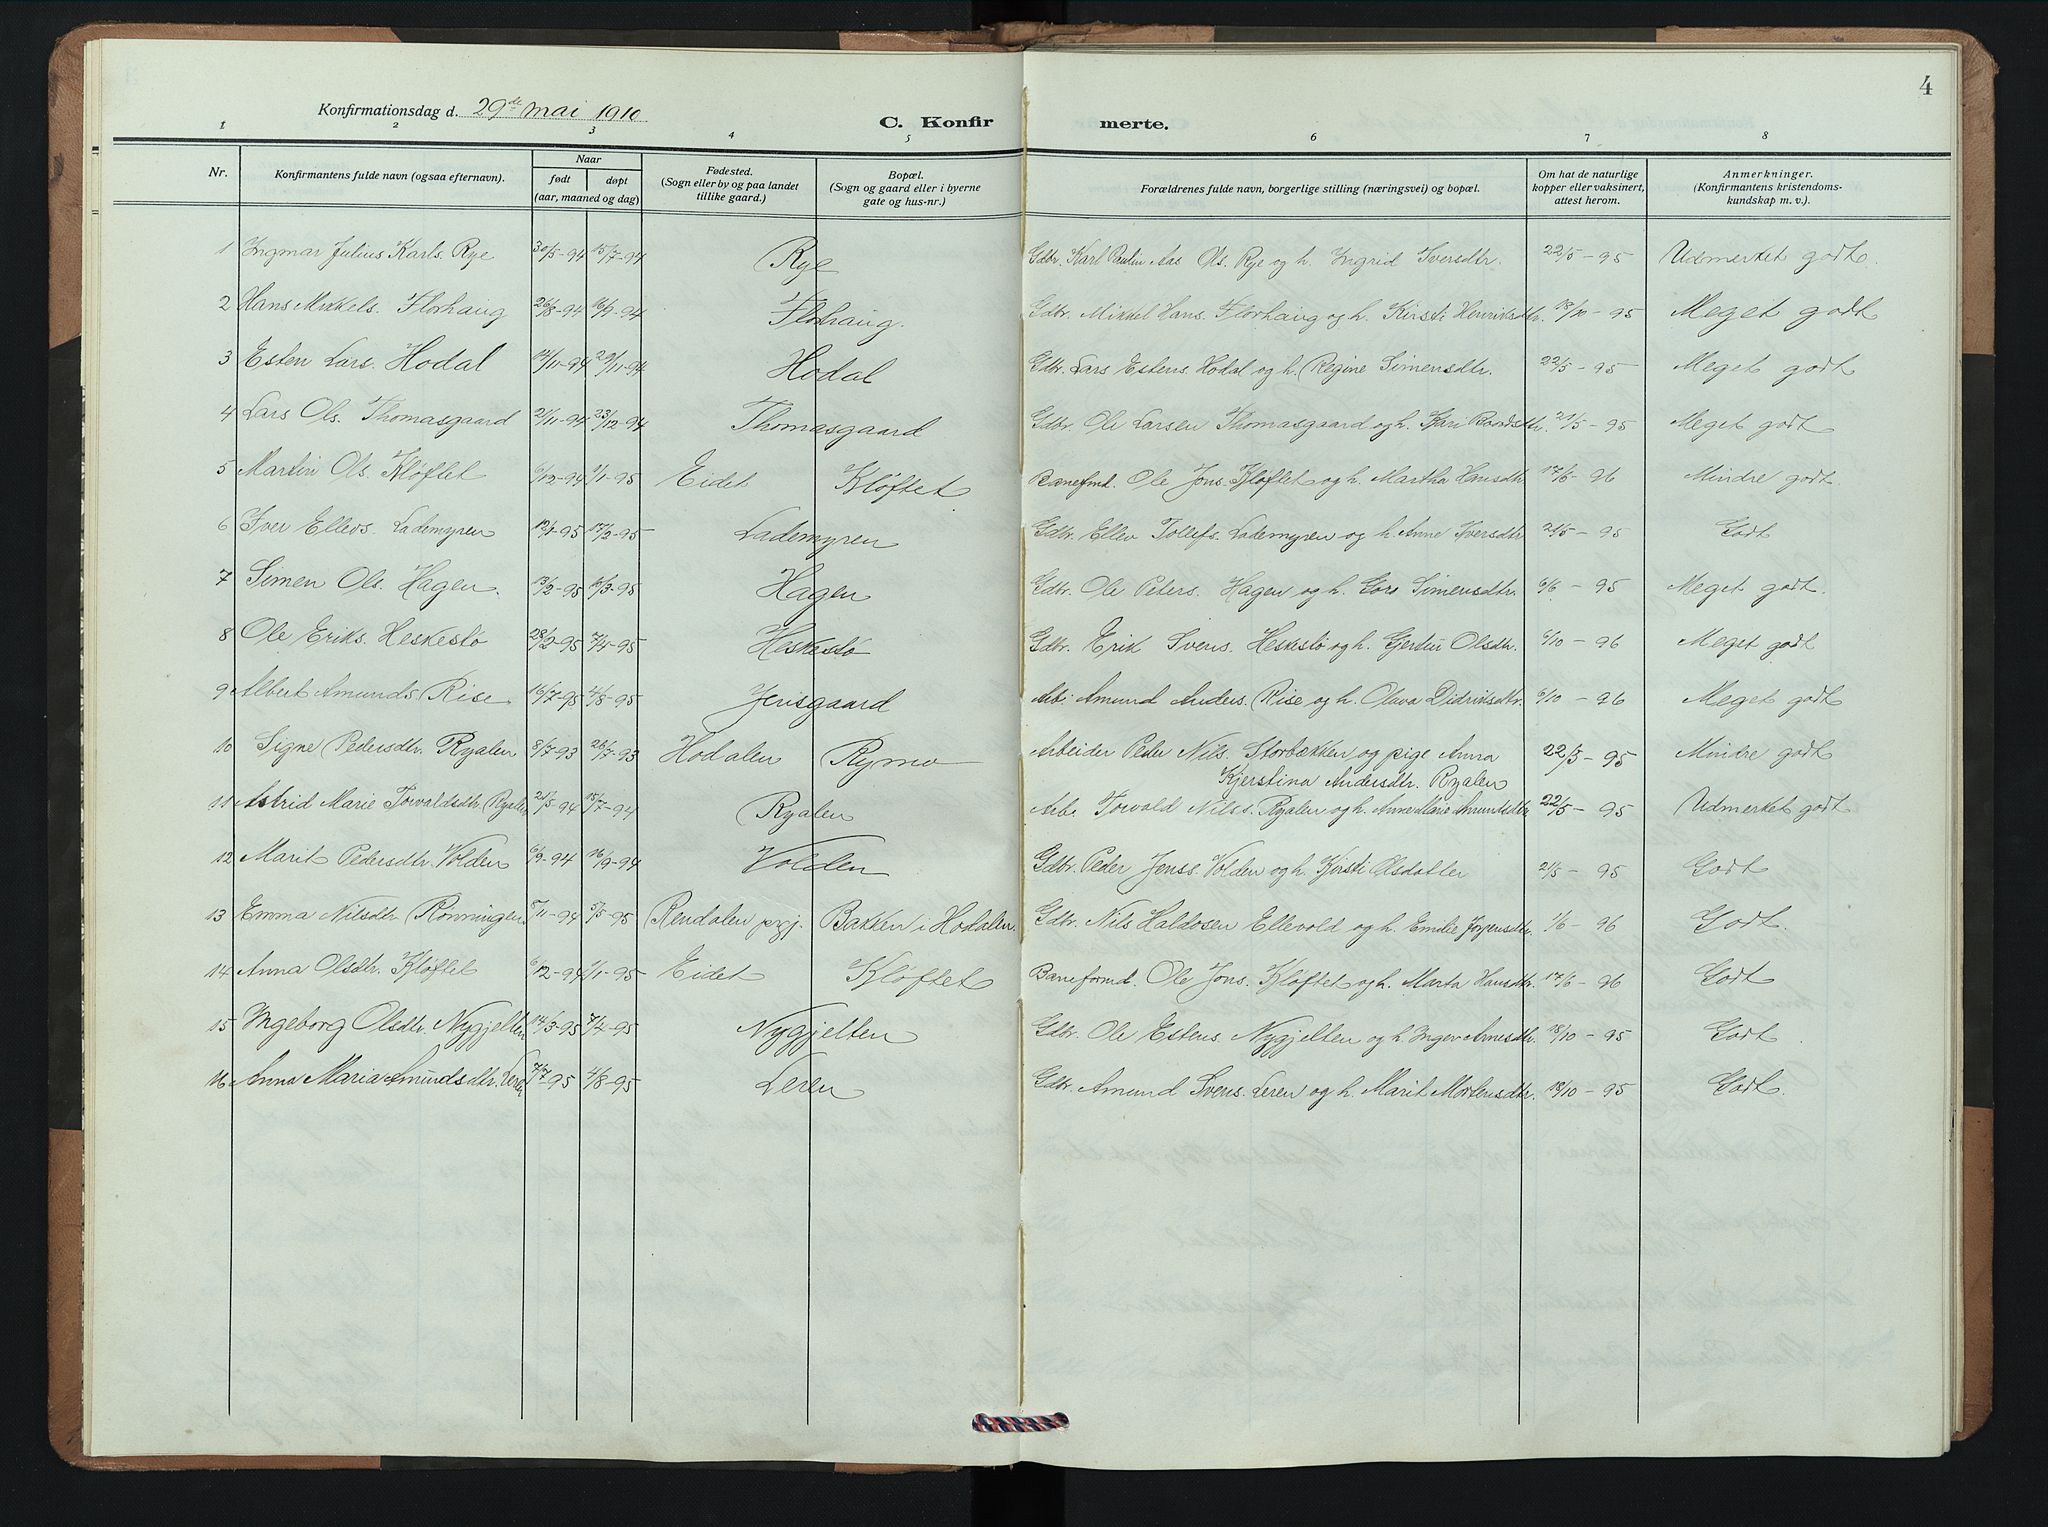 4
Konfirmationsdag d. 29de mai 1910
C. Konfir merte.
1 2 3 4 5 6 7 8
Nr. Konfirmantens fulde navn (ogsaa efternavn). Naar født døpt (aar, maaned og dag) Fødested. (Sogn eller by og paa landet tillike gaard.) Bopæl. (Sogn og gaard eller i byerne gate og hus-nr.) Forældrenes fulde navn, borgerlige stilling (næringsvei) og bopæl. Om hat de naturlige kopper eller vaksinert, attest herom. Anmerkninger. (Konfirmantens kristendoms-kundskap m. v.).
1 Ingmar Julius Karls. Rye 30/5-94 15/7-94 Rye Gdbr. Karl Paulin Aas Ols. Rye og h. Ingrid Iversdtr. 22/5 - 95 Udmerket godt.
2 Hans Mikkels. Florhaug 26/8-94 16/9-94 Florhaug. Gdbr. Mikkel Hans. Florhaug og h. Kirsti Henriksdtr. 18/10 - 95 Meget godt
3 Esten Lars. Hodal 12/11-94 29/11-94 Hodal Gdbr. Lars Estens. Hodal og h. Regine Simensdtr. 22/5 - 95 Meget godt
4 Lars Ols. Thomasgaard 2/11-94 23/12-94 Thomasgaard Gdbr. Ole Larsen Thomasgaard og h. Kari Baardsdtr. 21/5 - 95 Meget godt
5 Martin Ols. Kløftet 6/12-94 1/1-95 Eidet Kløftet Baneformd. Ole Jons. Kløftet og h. Martha Hansdtr 17/6 - 96 Mindre godt.
6 Iver Ellevs. Lademyren 12/1-95 17/2-95 Lademyren Gdbr. Ellev Tollefs. Lademyren og h. Anne Iversdtr 21/5 - 95 Godt
7 Simen Ols. Hagen. 13/2-95 10/3-95 Hagen Gdbr. Ole Peters. Hagen og h. Goro Simensdtr. 6/6 - 95 Meget godt.
8 Ole Eriks. Heskestø 28/2-95 7/4-95 Heskestø Gdbr. Erik Svens. Heskestø og h. Gjertru Olsdtr. 6/10 - 96 Meget godt
9 Albert Amunds. Rise. 16/7-95 4/8-95 Jensgaard Arb. Amund Anders. Rise og h. Olava Didriksdtr. 6/10 - 96 Meget godt
10 Signe Pedersdtr. Ryalen 8/7-93 26/7-93 Hodalen Rymo Arbeider Peder Nils. Storbækken og pige Anna 22/5 - 95 Mindre godt
Kjerstina Andersdtr. Ryalen
11 Astrid Marie Torvaldsdtr. Ryalen 21/5-94 15/7-94 Ryalen Arb. Torvald Nilss. Ryalen og h. Anne Marie Amundsdtr 22/5 - 95 Udmerket godt
12 Marit Pedersdtr. Volden 6/9-94 16/9-94 Volden Gdbr. Peder Jenss. Volden og h. Kirsti Olsdatter 21/5 - 95 Godt
13 Emma Nilsdtr. Rønningen 5/11-94 5/5-95 Rendalen prgj. Bakken i Hodalen. Gdbr. Nils Haldosen Ellevold og h. Emilie Jørgensdtr. 1/6 - 96 Godt.
14 Anna Olsdtr. Kløftet 6/12-94 1/1-95 Eidet Kløftet Baneformd. Ole Jons. Kløftet og h. Marta Hansdtr. 17/6 - 96 Godt
15 Ingeborg Olsdtr. Nygjelten 14/3-95 7/4-95 Nygjelten Gdbr. Ole Estens. Nygjelten og h. Ingev. Arnesdtr. 18/10 - 95 Godt
16 Anna Maria Amundsdtr. Leren 7/7-95 4/8-95 Leren Gdbr. Amund Svens. Leren og h. Marit Mortensdtr. 18/10 - 95 Godt.